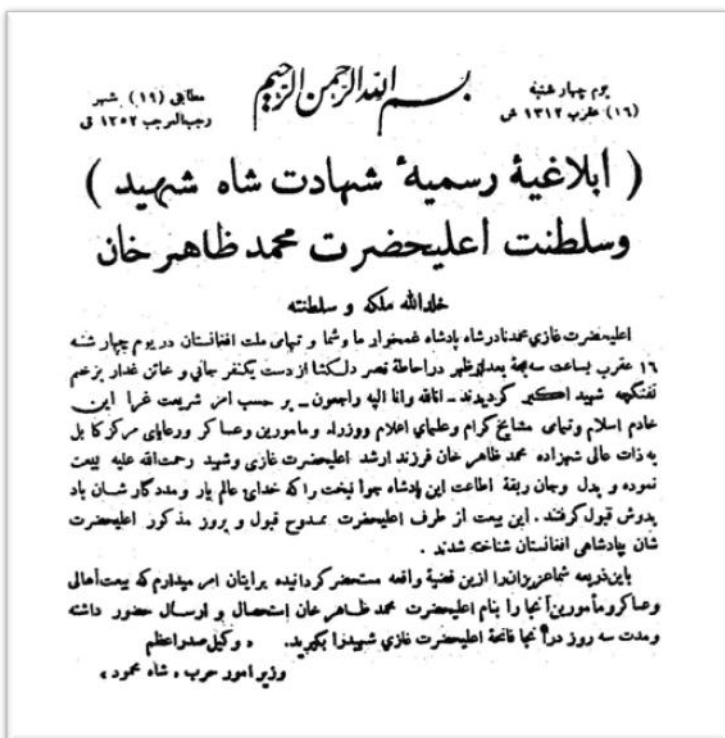 یوم چهار شنبه
(۱۶) عقرب ۱۳۱۲ ش
بسم الله الرحمن الرحیم
مطابق (۱۹) شهر
رجب‌المرجب ۱۳۵۲ ق
( ابلاغیهٔ رسمیهٔ شهادت شاه شهید )
وسلطنت اعلیحضرت محمد ظاهر خان
خلدالله ملکه و سلطنته
اعلیحضرت غازی محمدنادرشاه پادشاه غمخوار ما وشما و تمامی ملت افغانستان در یوم چهار شنبه
۱۶ عقرب بساعت سه بجهٔ بعدازظهر دراحاطهٔ قصر دلکشا از دست یکنفر جانی و خائن غدار بزخم
تفنگچه شهید اکبر گردیدند ــ انالله وانا الیه راجعون ــ بر حسب امر شریعت غرا این
خادم اسلام وتمامی مشایخ کرام وعلمای اعلام ووزراء ومامورین وعساکر ورعایای مرکز کابل
به ذات عالی شهزاده محمد ظاهر خان فرزند ارشد اعلیحضرت غازی وشهید رحمت‌الله علیه بیعت
نموده و بدل وجان ربقهٔ اطاعت این پادشاه جوا نبخت را که خدای عالم یار ومددگار شان باد
بدوش قبول گرفتند . این بیعت از طرف اعلیحضرت ممدوح قبول و بروز مذکور اعلیحضرت
شان بپادشاهی افغانستان شناخته شدند .
باین‌ذریعه شماعزیزان‌را ازین قضیهٔ واقعه مستحضر گردانیده برایتان امر میدارم که بیعت‌اهالی
وعساکر ومأمورین‌آنجا را بنام اعلیحضرت محمد ظاهر خان استحصال و ارسال حضور داشته
ومدت سه روز درآنجا فاتحهٔ اعلیحضرت غازی شهیدرا بگیرید. « وکیل صدراعظم
وزیر امور حرب ، شاه محمود »